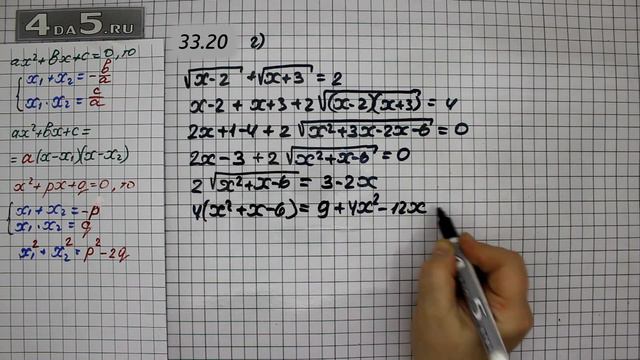 4DA5.RU
ax²+bx+c=0, то
x₁+x₂=-b/a
x₁·x₂=c/a
ax²+bx+c=
=a(x-x₁)(x-x₂)
x²+px+q=0, то
x₁+x₂=-p
x₁·x₂=q
x₁²+x₂²=p²-2q
33.20 г)
√(x-2) + √(x+3) = 2
x-2+x+3+2√((x-2)(x+3)) = 4
2x+1-4+2√(x²+3x-2x-6) = 0
2x-3+2√(x²+x-6) = 0
2√(x²+x-6) = 3-2x
4(x²+x-6) = 9+4x²-12x